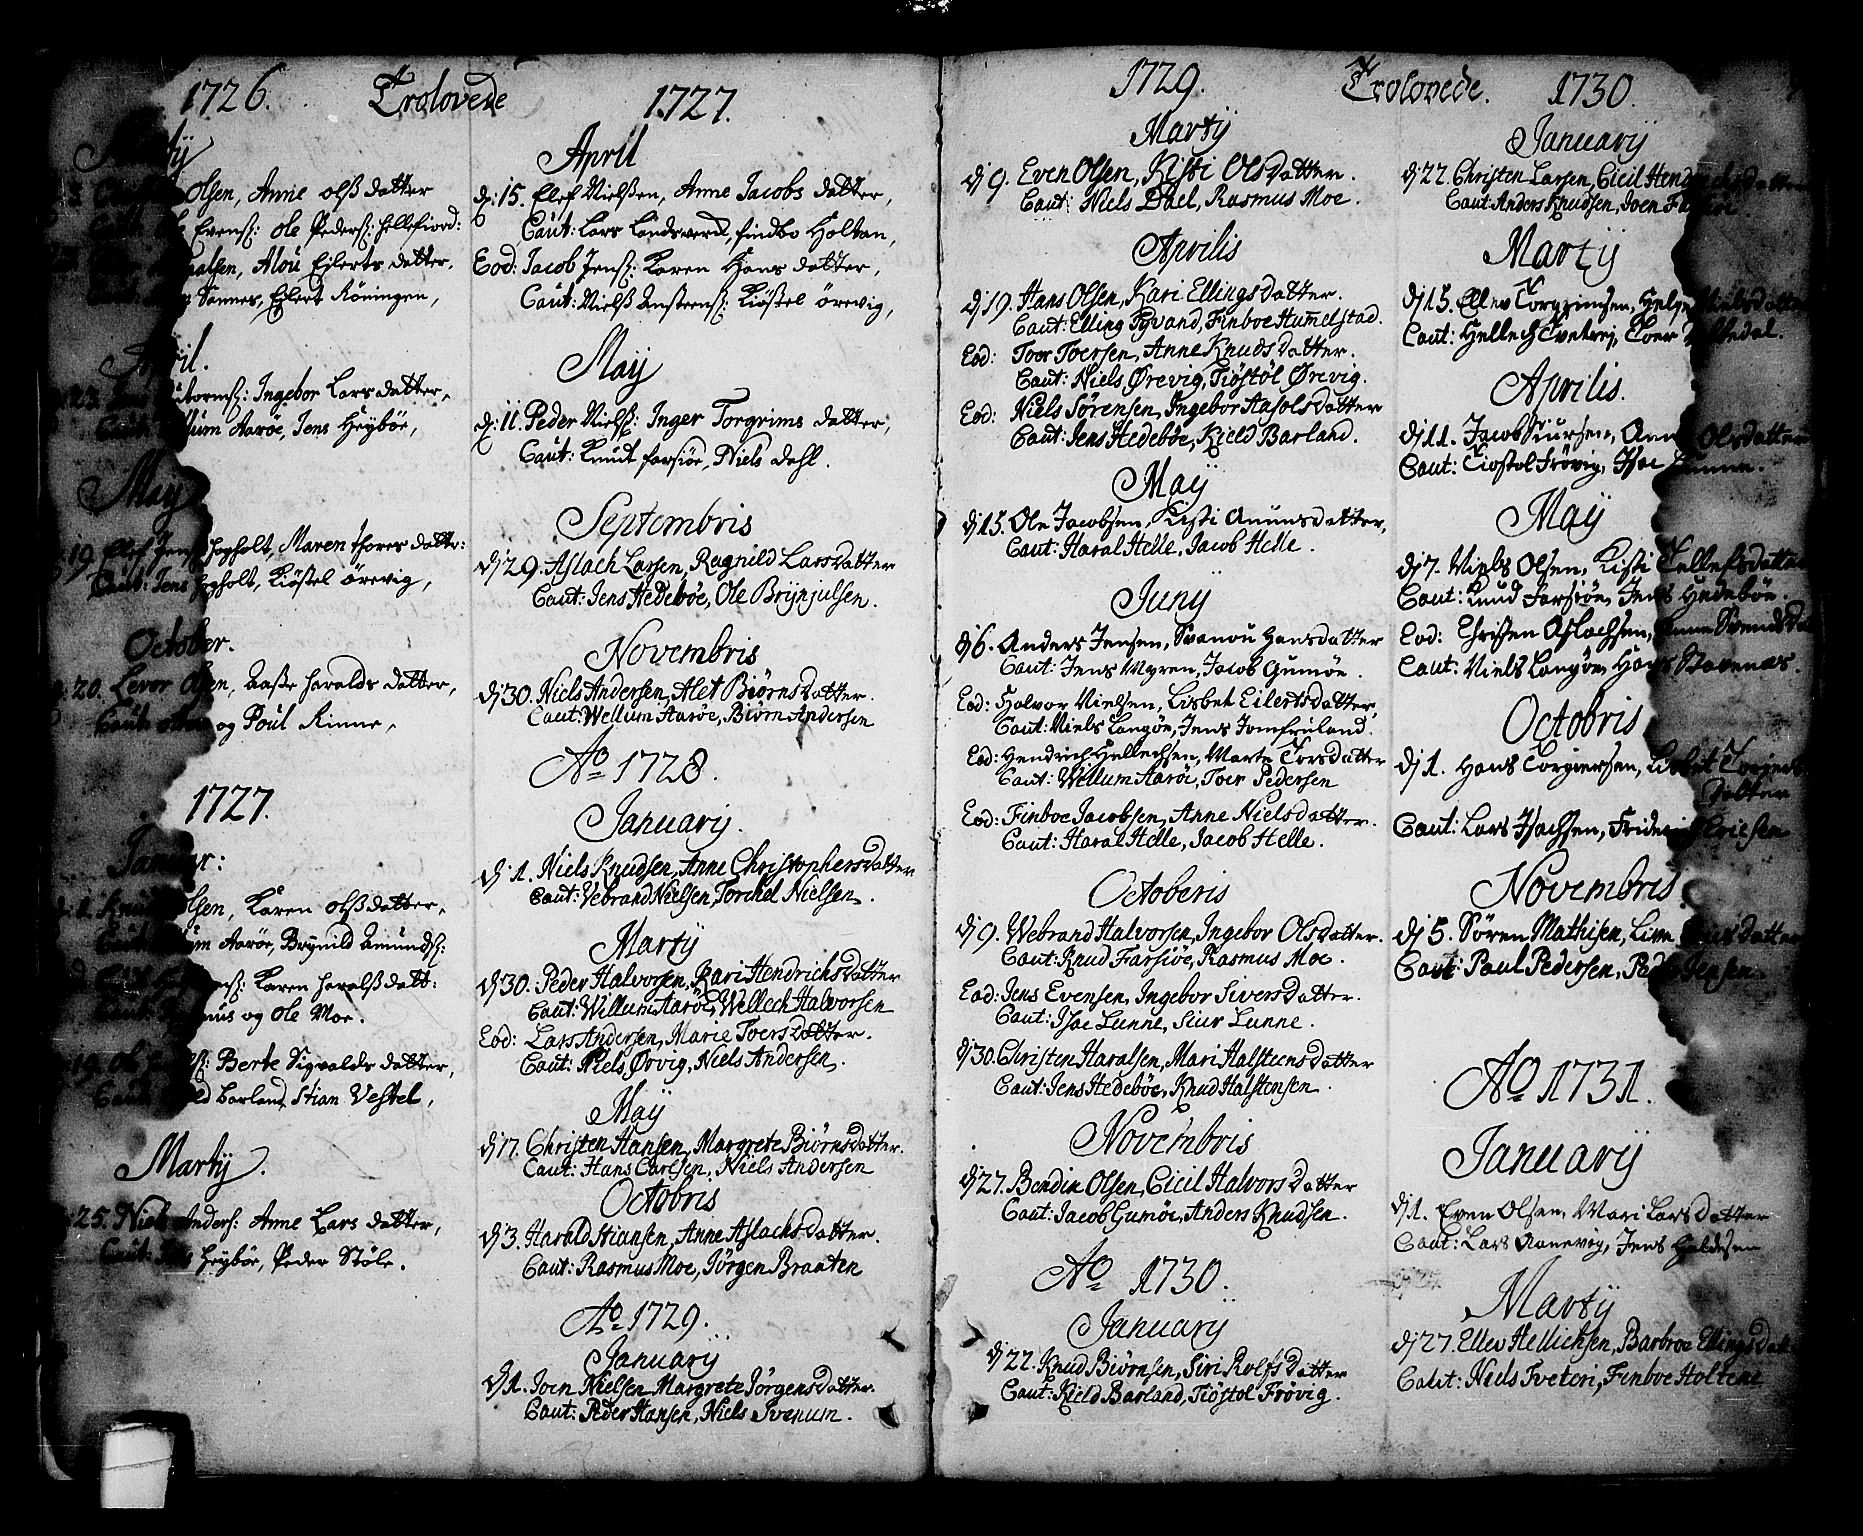 1726. Trolovede
Martij
Olsen, Anne olss datter
Evens: ole Peders: hellefiord:
alsen, Alou Eilerts datter,
Sannes, Eilert Röningen,
April.
23. Guttorms: Ingebor Lars datter,
Caut: Vellum Aaröe, Jens Heyböe,
May
19. Elef Jens: hogholt, Maren thores datter:
Caut: Jens hogholt, Kiöstel örevig,
October.
20. Levor Olsen, Aasse haralds datter,
Caut: og Poul Rinne,
1727.
Januar:
d. 1. Knud Olsen, Karen olss datter,
Caut: Vellum Aaröe, Brynild Amunds:
Karen haralss datt:
Caut: Rasmus og Ole Moe.
19. Berte Sigvalds datter,
Caut: Kield Barland, Stian Vestel,
Martij.
25. Niels Anders: Anne Lars datter,
Caut: Jens Heyböe, Peder Stöle.
1727.
April
d: 15. Elef Nielssen, Anne Jacobs datter,
Caut: Lars Landsverck, findbo Holtan,
Eod: Jacob Jens: Karen Hans datter,
Caut: Nielss Anstens: Kiöstel örevig,
May
d: 11. Peder Niels: Inger Torgrims datter,
Caut: Knudt farsiöe, Niels dahl.
Septembris
dj 29. Aslach Larsen, Ragnild Larsdatter
Caut: Jens Hedeböe, Ole Brÿnjulsen.
Novembris
dj 30. Niels Andersen, Alet Biörnsdatter.
Caut: Wellum Aaröe, Biörn Andersen
Ao 1728.
Januarij.
dj 1. Niels Knudsen, Anne Christophersdatter
Caut: Vebrand Nielsen, Torchel Nielsen.
Martij
dj 30. Peder Halvorsen, Kari Hendrichsdatter
Caut: Willum Aaröe, Wellech Halvorsen
Eod: Lars Andersen, Marie Toersdatter.
Caut: Niels Ørvig, Niels Andersen.
Maij
dj 17. Christen Hansen, Margrete Biörnsdatter.
Caut: Hans Carlsen, Niels Andersen
Octobris
dj 3. Harald Stiansen, Anne Aslachsdatter.
Caut: Rasmus Moe, Jörgen Braaten
Ao 1729.
Januarij
dj 1. Joen Nielsen Margrete Jörgensdatter.
Caut: Peder Hansen, Niels Ivenum.
1729. Trolovede.
Martij
dj 9. Even Olsen, Kisti Olsdatter.
Caut: Niels Dael, Rasmus Moe.
Aprilis
dj 19. Hans Olsen, Kari Ellingsdatter.
Caut: Elling Tyvand, Finboe Hummelstad.
Eod: Toer Toersen, Anne Knudsdatter.
Caut: Niels Ørevig, Tiöstöl Ørevig.
Eod: Niels Sörensen, Ingebor Aasolsdatter
Caut: Jens Hedeböe, Kield Barland.
Maij
dj 15. Ole Jacobsen, Kisti Amunsdatter,
Caut: Haral Helle, Jacob Helle.
Junij
dj 6. Anders Jensen, Svanou Hansdatter
Caut: Jens Myren, Jacob Gumöe.
Eod: Halvor Nielsen, Lisbet Eilertsdatter,
Caut: Niels Langöe, Jens Jomfruland.
Eod: Hendrich Hellechsen, Marte Torsdatter
Caut: Wellum Aaröe, Toer Pedersen
Eod: Finboe Jacobsen, Anne Nielsdatter.
Caut: Haral Helle, Jacob Helle.
Octoberis
dj 9. Webrand Halvorsen, Ingebor Olsdatter.
Caut: Knud Farsiöe, Rasmus Moe.
Eod: Jens Evensen, Ingebor Siversdatter.
Caut: Isac Lunne, Siur Lunne.
dj 30. Christen Haralsen, Mari Halsteensdatter
Caut: Jens Hedeböe, Knud Halstensen.
Novembris
dj 27. Bendix Olsen, Cicil Halvorsdatter
Caut: Jacob Gumöe, Anders Knudsen.
Ao 1730.
Januarij
dj 22. Knud Biörnsen, Siri Rolfsdatter
Caut: Kield Barland, Tiöstol Frövig.
1730.
Januarij
dj 22. Christen Larsen, Cicil Hendrichsdatter
Caut: Anders Knudsen, Joen Farsiöe.
Martij
dj 15. Ellev Torgrimsen, Helge Nielsdatter
Caut: Hellech Tveteri, Toer
Aprilis.
dj 11. Jacob Siursen, Anne Olsdatter
Caut: Tiostol Frövig, Isac Lunne.
Maij
dj 7. Niels Olsen, Kisti Tellefsdatter
Caut: Knud Farsiöe, Jens Hedeböe.
Eod: Christen Aslachsen, Anne Svends
Caut: Niels Langöe, Hans Stavenæs.
Octobris
dj 1. Hans Torgiersen, Lisbet
datter
Caut: Lars Isachsen, Friderich Ericsen
Novembris
dj 5. Sören Mathisen, Live datter
Caut: Paul Pedersen, Peder Jensen.
Ao 1731.
Januarij
dj 1. Even Olsen, Mari Larsdatter
Caut: Lars Aanevig, Jens Haldesen
Martij
dj 27. Ellev Hellichsen, Barbroe Ellingsdatt
Caut: Niels Tveteri, Finboe Holtene